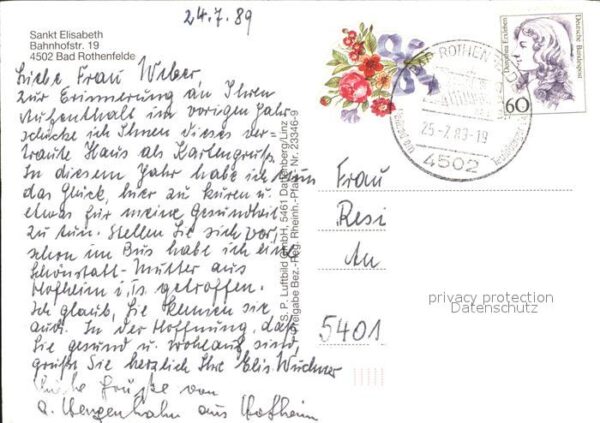 24.7.89
Sankt Elisabeth
Bahnhofstr. 19
4502 Bad Rothenfelde
Liebe Frau Weber,
zur Erinnerung an Ihren
Aufenthalt im vorigen Jahr
schicke ich Ihnen dieses ver-
traute Haus als Kartengruß.
In diesem Jahr habe ich nun
das Glück, hier zu kuren u.
etwas für meine Gesundheit
zu tun. Stellen Sie sich vor,
schon im Bus habe ich eine
Schönstatt-Mutter aus
Hofheim i. Ts. getroffen.
Ich glaub, Sie kennen sie
auch. In der Hoffnung, daß
Sie gesund u. wohlauf sind,
grüße Sie herzlich Ihre Elis. Wüchner
Liebe Grüße von
a. Mengenhahn aus Hofheim
S. P. Luftbild GmbH, 5461 Dattenberg/Linz
Freigabe Bez.-Reg. Rheinh.-Pfalz Nr. 23346-9
BAD ROTHENFELDE
25-7.89-19
4502
Dorothea Erxleben
Deutsche Bundespost
60
Frau
Resi
An
5401
privacy protection
Datenschutz